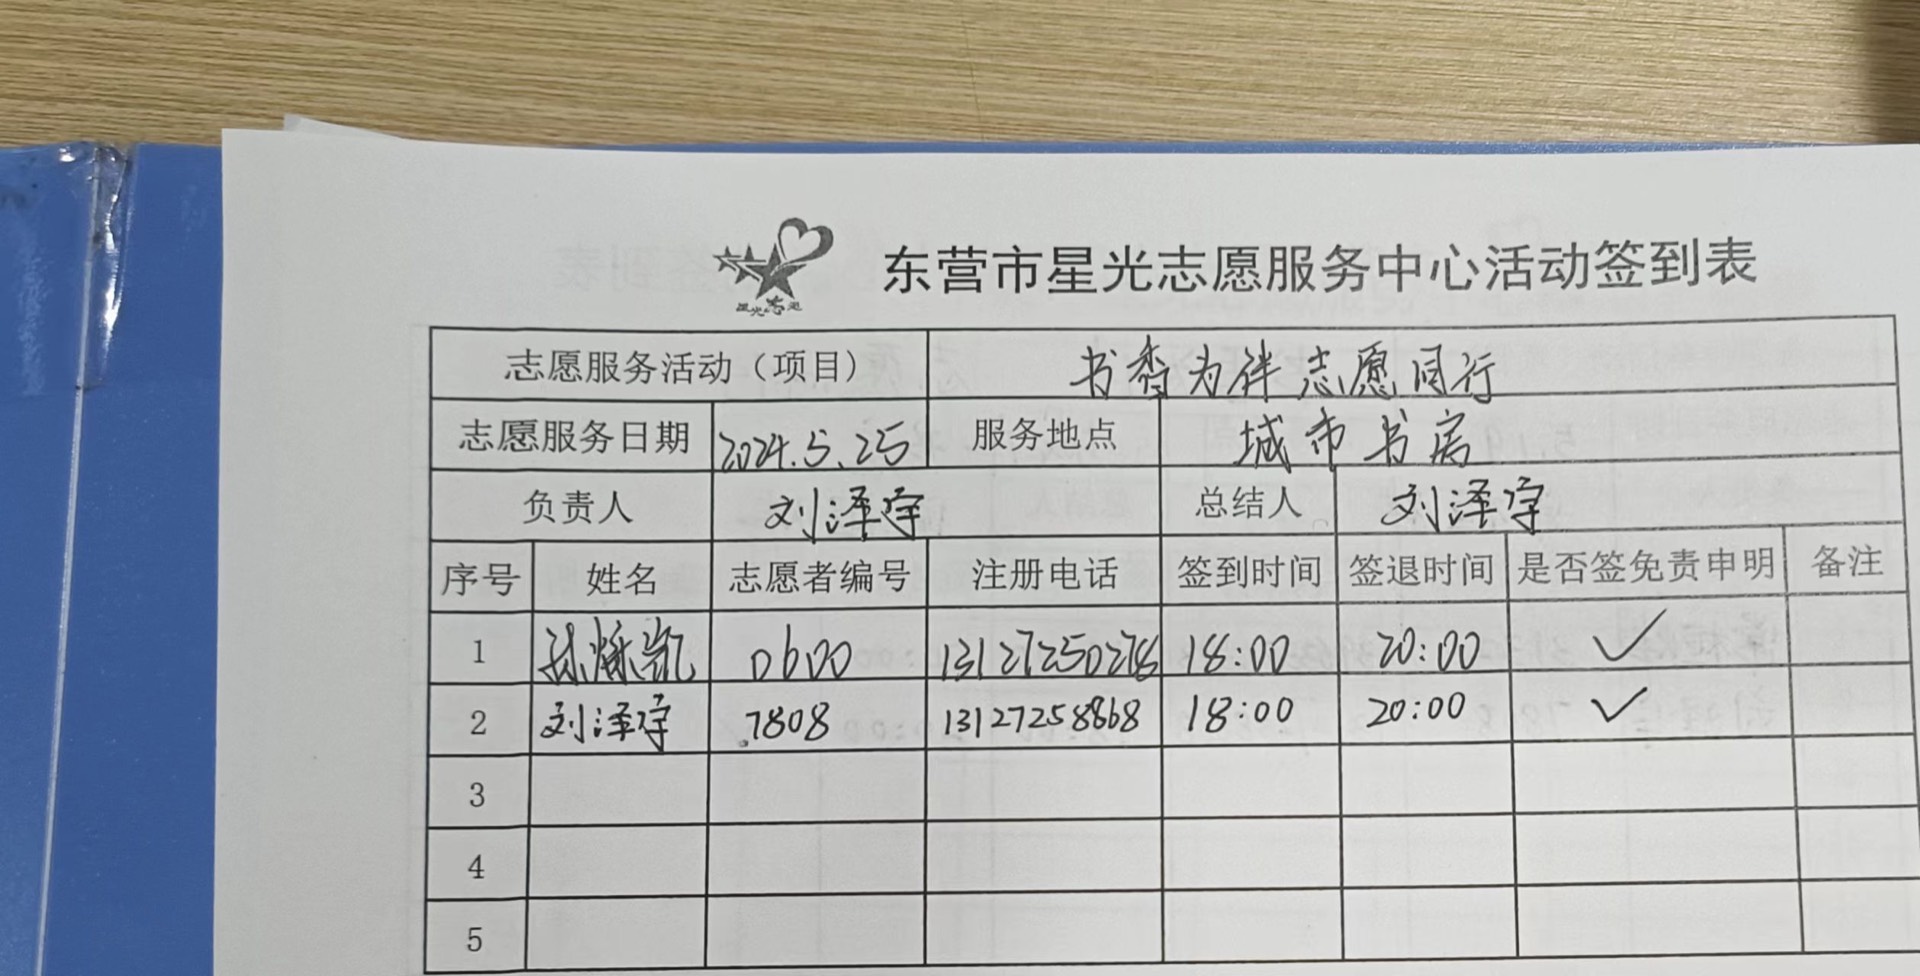 星光志愿
东营市星光志愿服务中心活动签到表
志愿服务活动（项目） 书香为伴志愿同行
志愿服务日期 2024.5.25 服务地点 城市书房
负责人 刘泽宇 总结人 刘泽宇
序号 姓名 志愿者编号 注册电话 签到时间 签退时间 是否签免责申明 备注
1 孙烁凯 0600 13127250278 18:00 20:00 ✓
2 刘泽宇 7808 13127258868 18:00 20:00 ✓
3
4
5